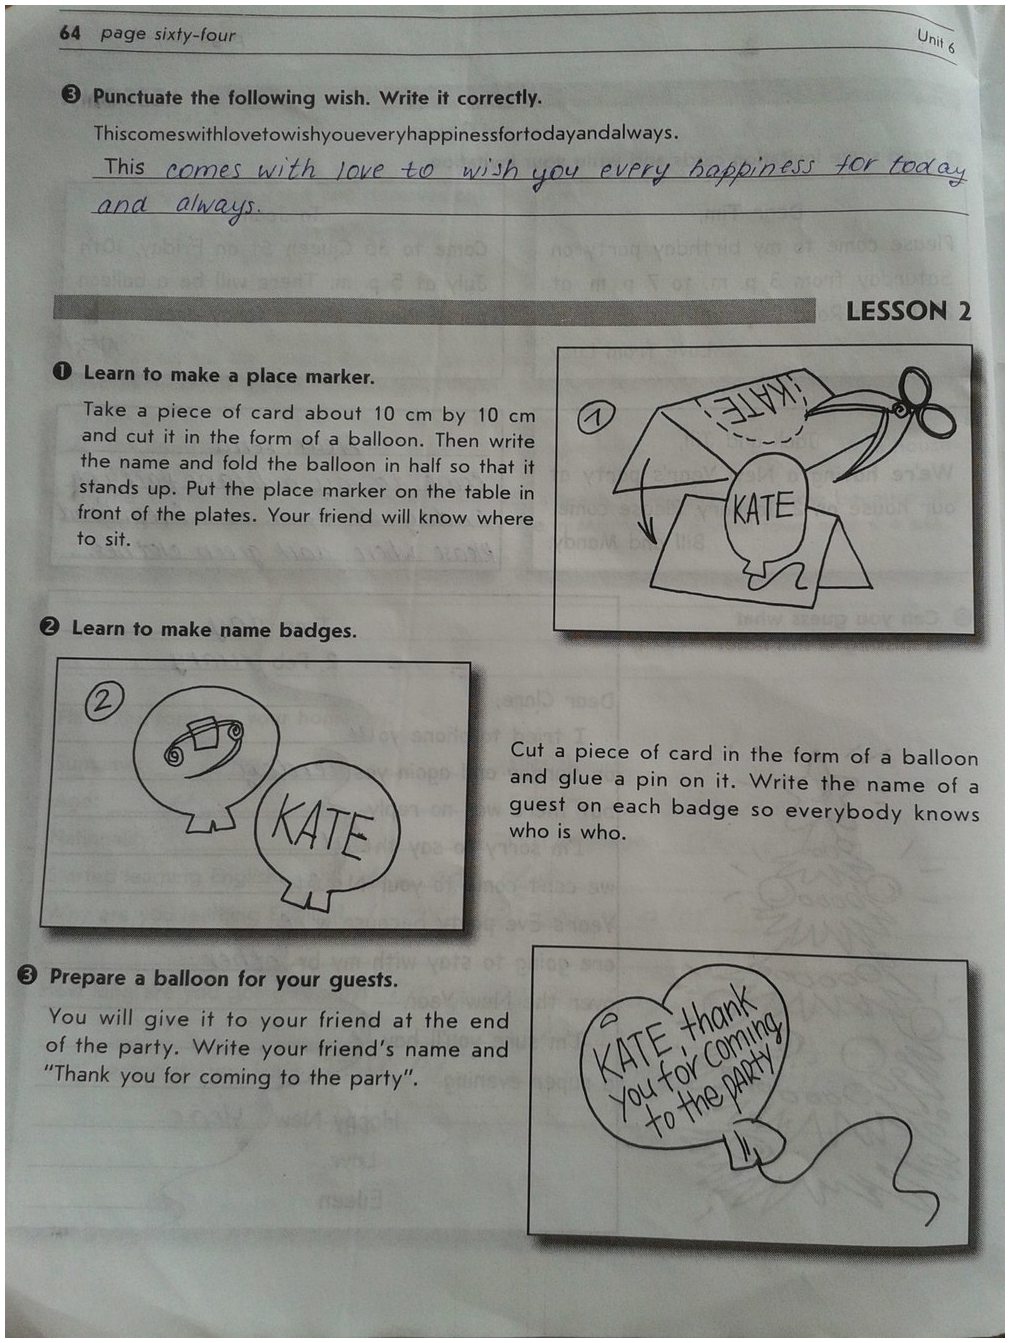 64 page sixty-four
Unit 6
❸ Punctuate the following wish. Write it correctly.
Thiscomeswithlovetowishyoueveryhappinessfortodayandalways.
This comes with love to wish you every happiness for today
and always.
LESSON 2
❶ Learn to make a place marker.
Take a piece of card about 10 cm by 10 cm
and cut it in the form of a balloon. Then write
the name and fold the balloon in half so that it
stands up. Put the place marker on the table in
front of the plates. Your friend will know where
to sit.
1
KATE
KATE
❷ Learn to make name badges.
2
KATE
Cut a piece of card in the form of a balloon
and glue a pin on it. Write the name of a
guest on each badge so everybody knows
who is who.
❸ Prepare a balloon for your guests.
You will give it to your friend at the end
of the party. Write your friend's name and
"Thank you for coming to the party".
KATE, thank
you for coming
to the PARTY